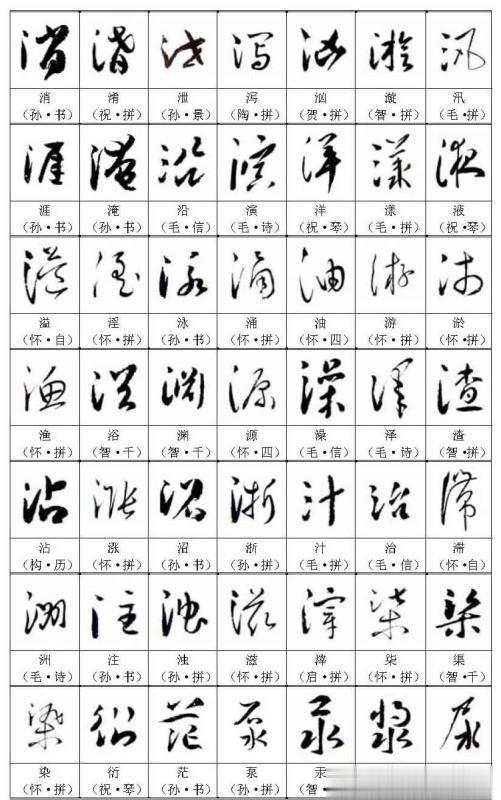 消 淆 泄 泻 汹 漩 汛
(孙·书) (祝·拼) (孙·景) (陶·拼) (贺·拼) (智·拼) (毛·拼)
涯 淹 沿 演 洋 漾 液
(孙·书) (孙·书) (毛·信) (毛·诗) (祝·琴) (毛·拼) (祝·琴)
溢 淫 泳 涌 油 游 淤
(怀·自) (怀·拼) (孙·书) (怀·拼) (怀·四) (怀·拼) (怀·拼)
渔 浴 渊 源 澡 泽 渣
(怀·拼) (智·千) (智·千) (怀·四) (毛·信) (毛·诗) (智·拼)
沾 涨 沼 浙 汁 治 滞
(构·历) (怀·拼) (孙·书) (孙·拼) (毛·拼) (毛·信) (怀·自)
洲 注 浊 滋 滓 柒 渠
(毛·诗) (孙·书) (孙·拼) (怀·拼) (启·拼) (怀·拼) (智·千)
染 衍 茫 泵 汞
(怀·拼) (祝·琴) (孙·书) (孙·拼) (智·